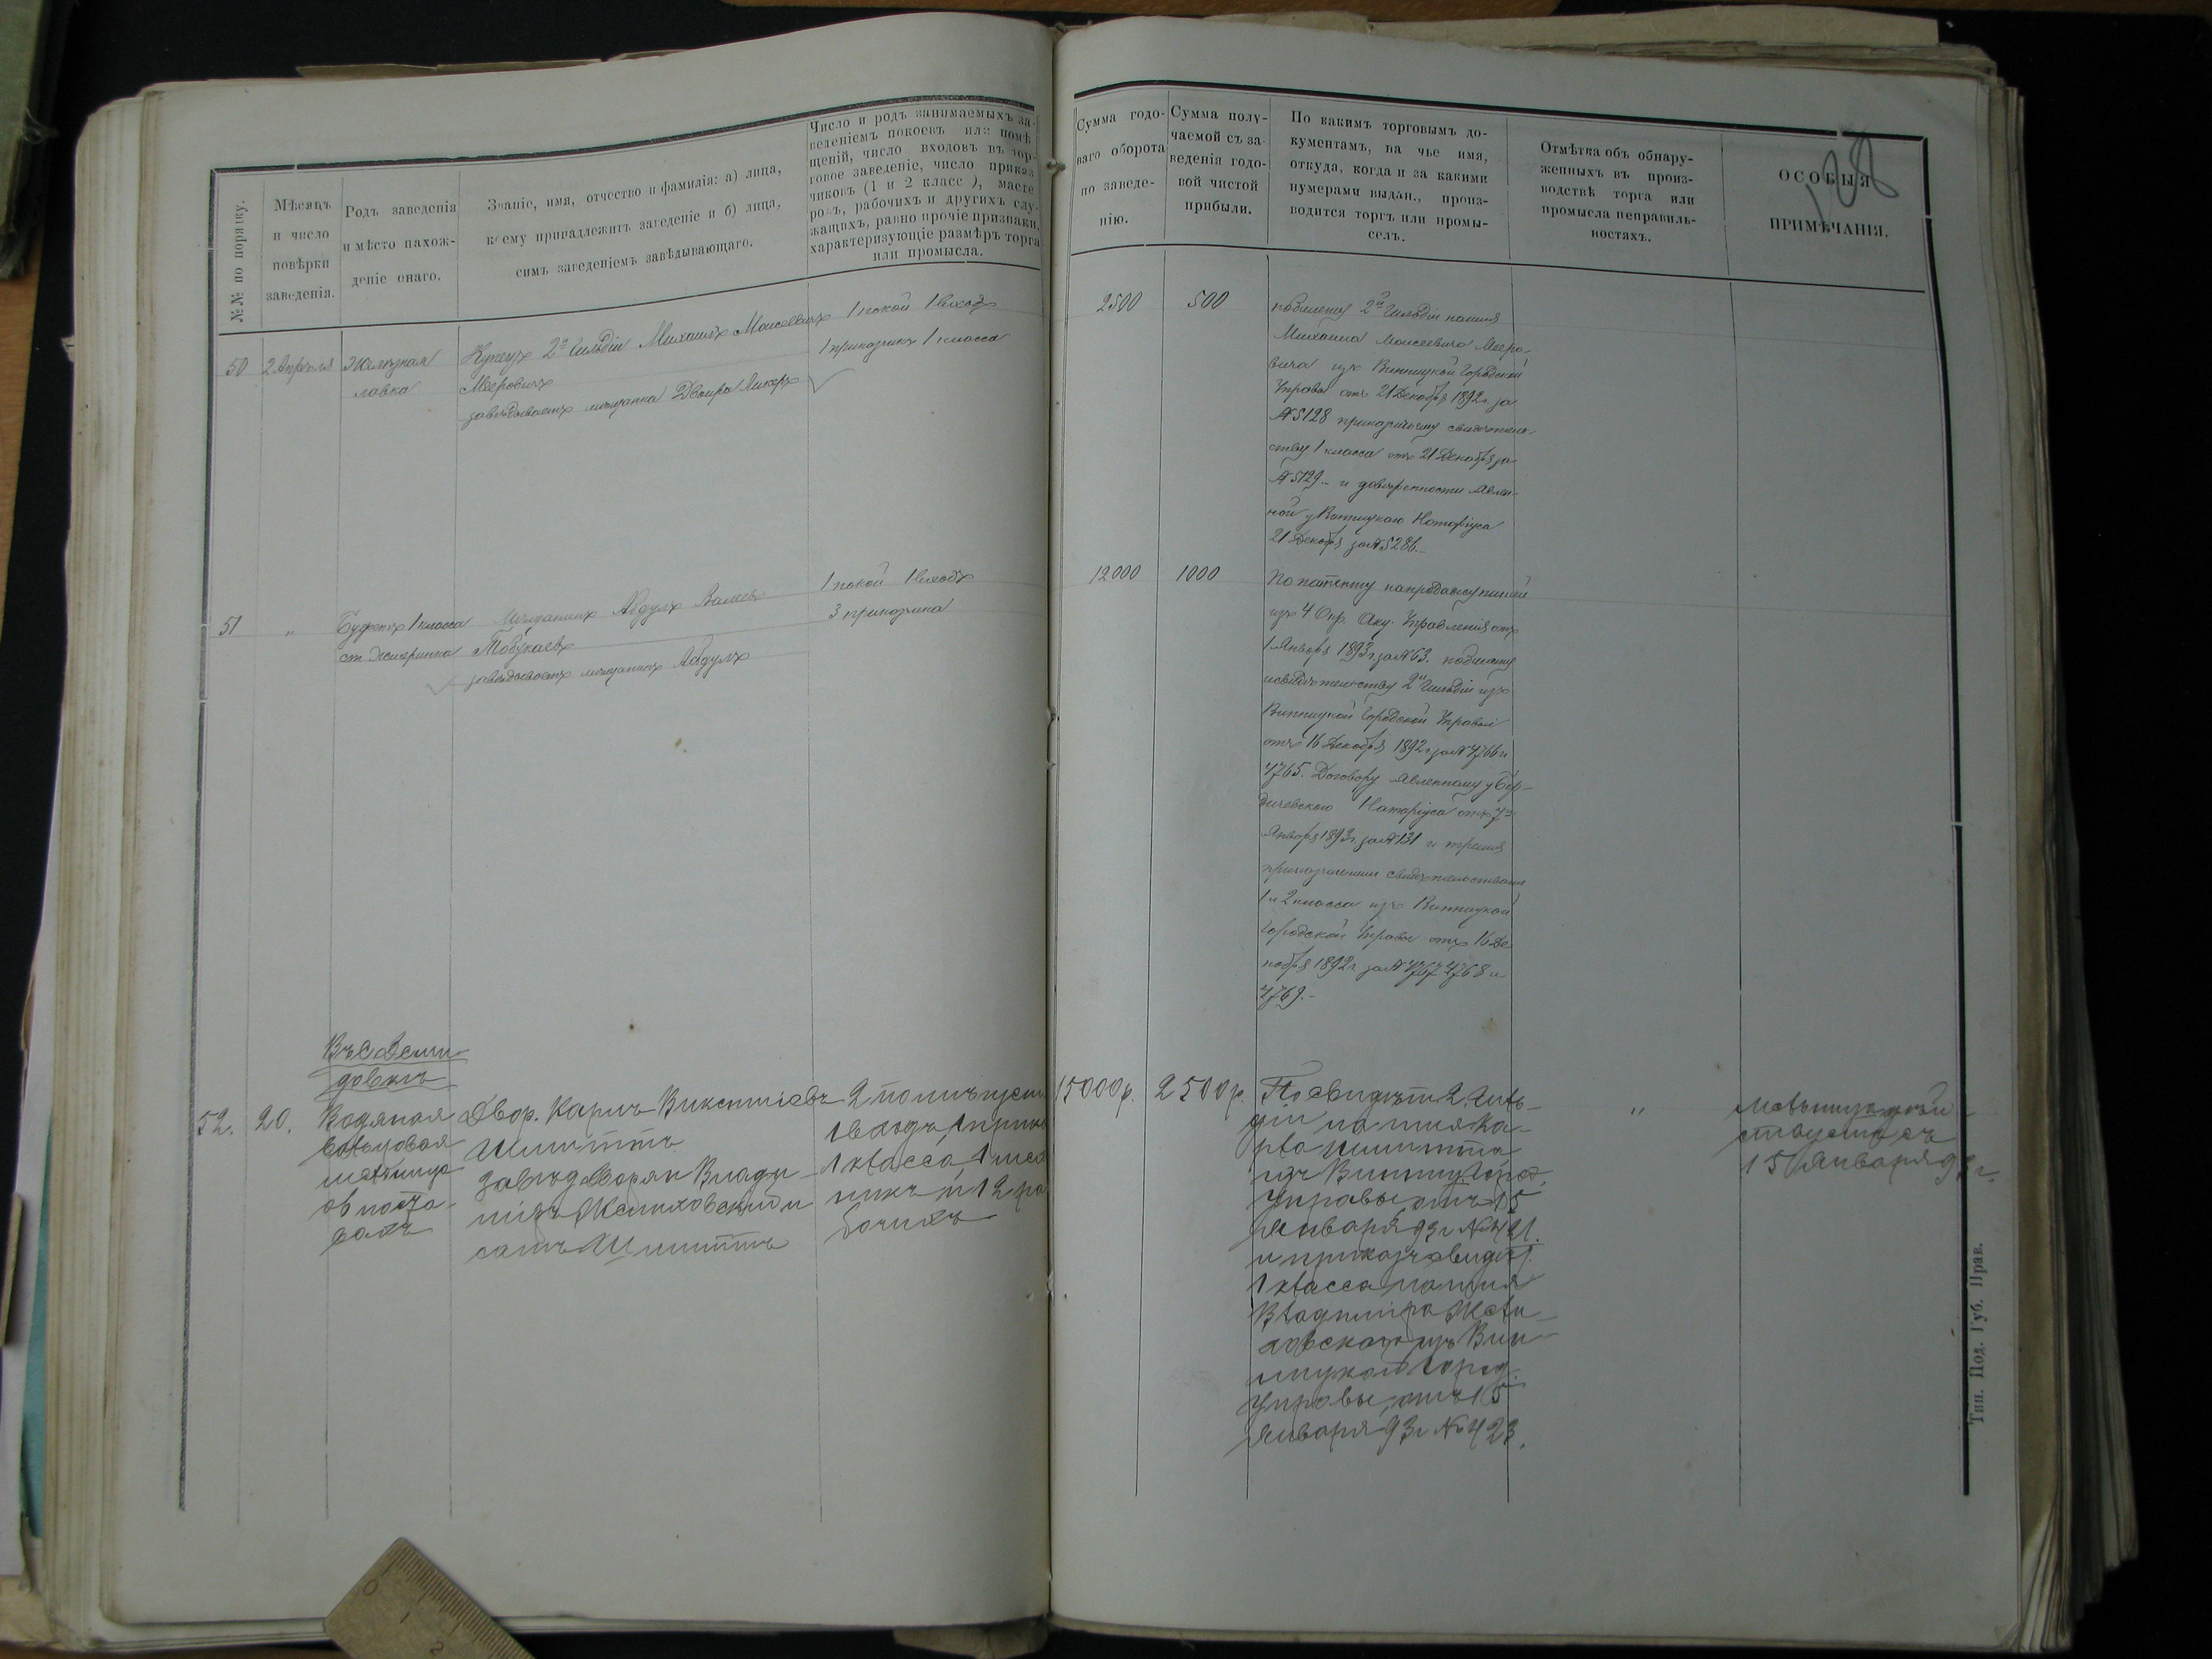 №№ по порядку.
Мѣсяцъ
и число
повѣрки
заведенія.
Родъ заведенія
и мѣсто нахож-
деніе онаго.
Званіе, имя, отчество и фамилія: а) лица,
коему принадлежитъ заведеніе и б) лица,
симъ заведеніемъ завѣдывающаго.
Число и родъ занимаемыхъ за-
веденіемъ покоевъ или помѣ
щеній, число входовъ въ тор-
говое заведеніе, число приказ
чиковъ (1 и 2 класс ), масте
ровъ, рабочихъ и другихъ слу-
жащихъ, равно прочіе признаки,
характеризующіе размѣръ торга
или промысла.
Сумма годо-
ваго оборота
по заведе-
нію.
Сумма полу-
чаемой съ за-
веденія годо-
вой чистой
прибыли.
По какимъ торговымъ до-
кументамъ, на чье имя,
откуда, когда и за какими
нумерами выдан., произ-
водится торгъ или промы-
селъ.
Отмѣтка объ обнару-
женныхъ въ произ-
водствѣ торга или
промысла неправиль-
ностяхъ.
ОСОБЫЯ
ПРИМѢЧАНІЯ.
50
2 Апрѣля
Желѣзная
лавка
Купецъ 2й Гильдіи Михаилъ Моисеевичъ
Мееровичъ
завѣдываетъ мѣщанка Двойра
1 покой 1 входъ
1 приказчикъ 1 класса
2500
500
по билету 2й Гильдіи на имя
Михаила Моисеевича Мееро-
вича изъ Винницкой Городской
Управы отъ 21 Декабря 1892 г за
№ 5128 приказчичьему свидѣтель-
ству 1 класса отъ 21 Декабря за
№ 5129. и довѣренности явлен-
ной у Винницкаго Нотаріуса
21 Декабря за № 5286.
51
"
Буфетъ 1 класса
ст. Жмеринка
Мѣщанинъ Абдулъ
завѣдываетъ мѣщанинъ Абдулъ
1 покой 1 входъ
3 приказчика
12000
1000
По патенту на продажу питей
изъ 4 Окр. Акц. Управленія отъ
1 Января 1893 г. за № 63. по билету
и свидѣтельству 2й Гильдіи изъ
Винницкой Городской Управы
отъ 16 Декабря 1892 г за № 4766 и
4765. Договору явленному у Бер-
дичевскаго Нотаріуса отъ 7го
Января 1893 г. за № 131 и тремя
приказчичьими свидѣтельствами
1 и 2 класса изъ Винницкой
Городской Управы отъ 16 Де
кабря 1892 г. за № 4767 4768 и
4769.
Въ с Деми-
довкѣ
52.
20.
Водяная
вальцовая
мельница
о
Двор. Карлъ Викентіевъ
Шмиттъ
завѣд дворян Влади-
міръ Желиховскій и
самъ Шмиттъ
2 помѣщен
1 входъ, 1 прик
1 класса, 1
никъ и 12 ра
бочихъ
15000 р.
2500 р.
По свидѣт 2. Гиль-
діи на имя Ка-
рла Шмитта
изъ Винниц. Город.
Управы, отъ 15
Января 93 г № 421.
и приказч свидѣт.
1 класса на имя
Владиміра Жели-
ховскаго изъ Вин-
ницкой Город.
Управы, отъ 15
Января 93 г № 423.
"
Мельница дѣй-
ствуетъ съ
15 Января 93 г.
Тип. Под. Губ. Прав.